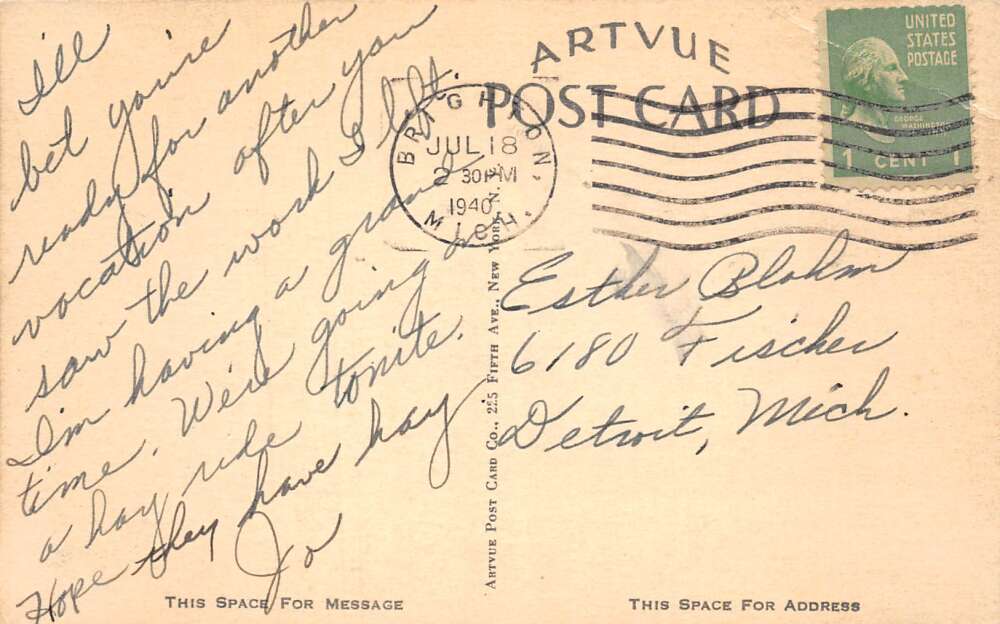 I'll
bet you're
ready for another
vocation after you
saw the work I left.
I'm having a grand
time. We're going on
a hay ride tonite.
Hope they have hay
Jo
THIS SPACE FOR MESSAGE
ARTVUE
POST CARD
BRIGHTON
JUL 18
2 30 PM
1940
MICH.
UNITED
STATES
POSTAGE
GEORGE
WASHINGTON
1 CENT 1
ARTVUE POST CARD CO., 225 FIFTH AVE., NEW YORK, N. Y.
Esther Blohm
6180 Fischer
Detroit, Mich.
THIS SPACE FOR ADDRESS